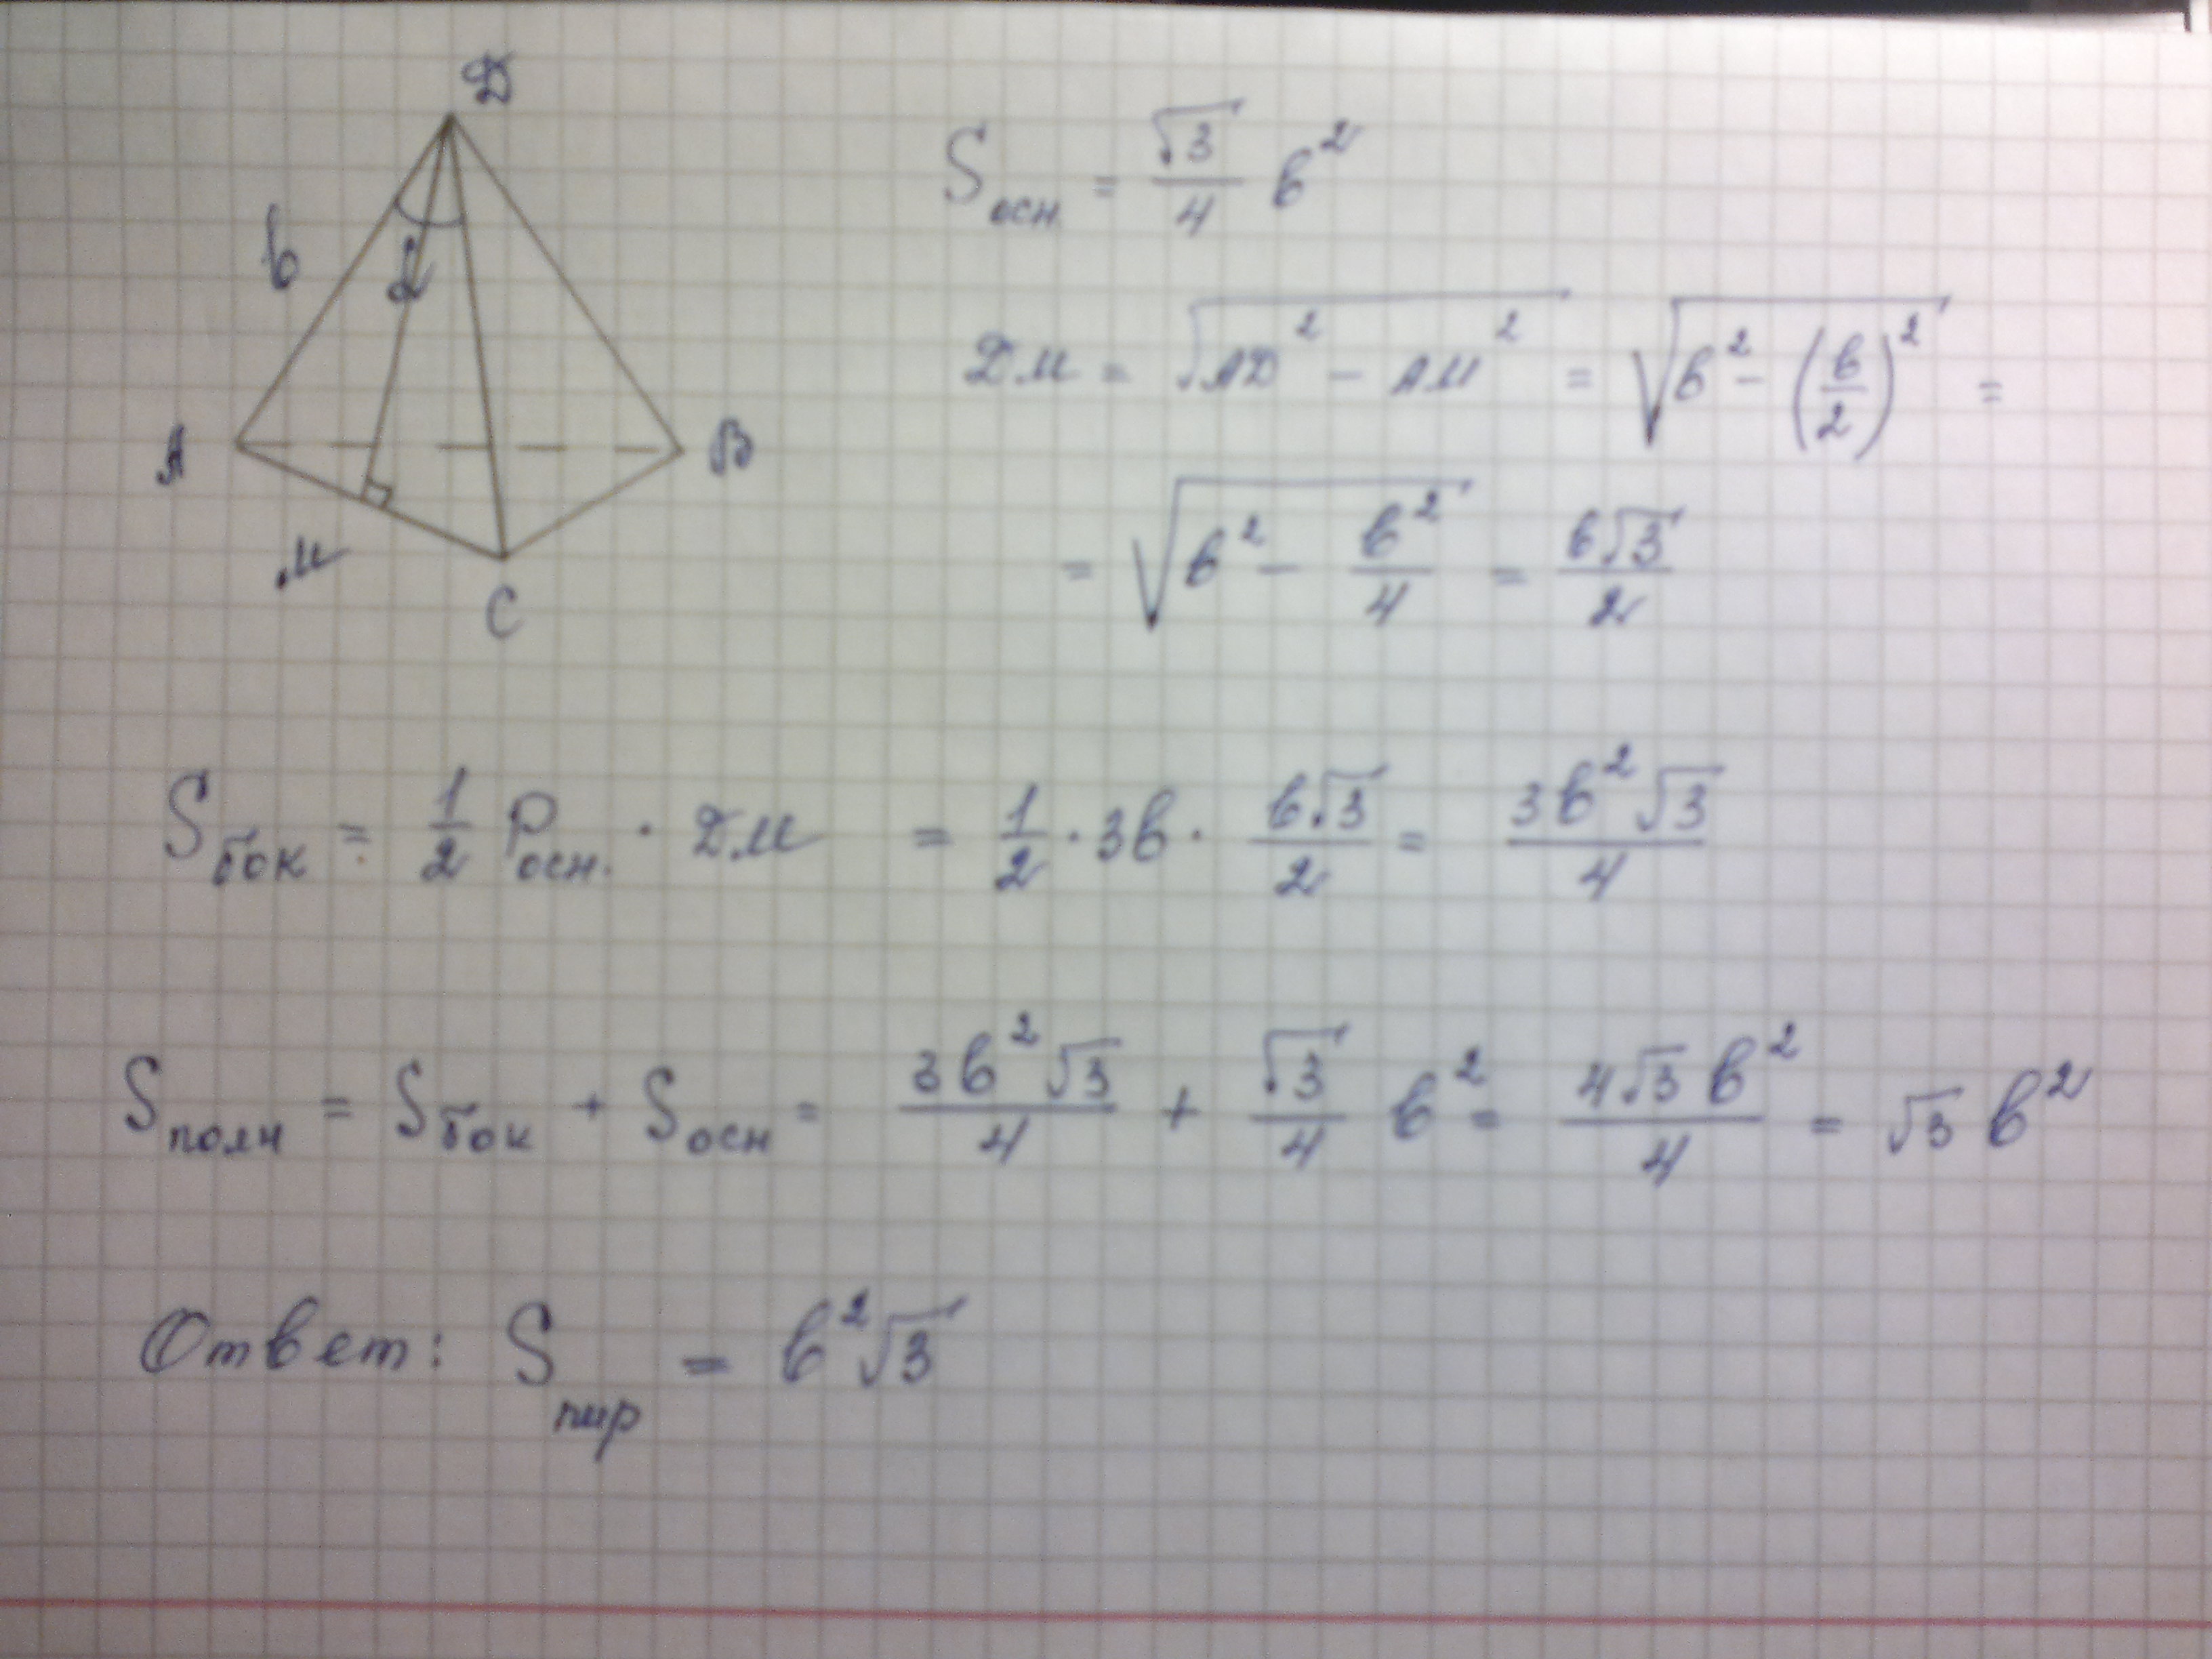 D
b
α
A
B
M
C
Sосн = √3/4 b²
DM = √(AD² − AM²) = √(b² − (b/2)²) =
= √(b² − b²/4) = b√3/2
Sбок = 1/2 Pосн. · DM = 1/2 · 3b · b√3/2 = 3b²√3/4
Sполн = Sбок + Sосн = 3b²√3/4 + √3/4 b² = 4√3 b²/4 = √3 b²
Ответ: Sпир = b²√3